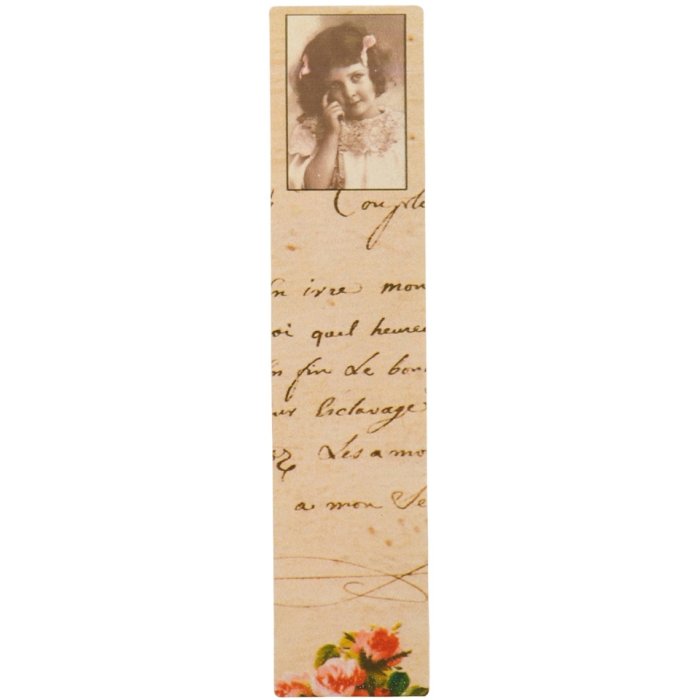 Couple
n ivre mon
oi quel heure
n fin Le bon
ur Esclavage
Les a mo
a mon Se